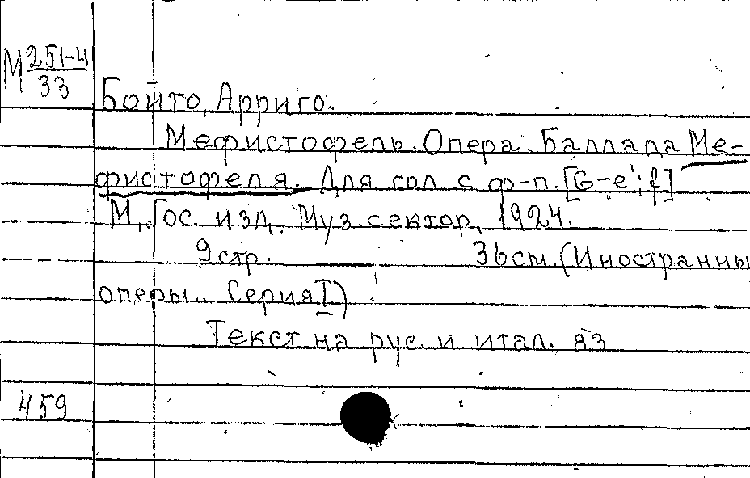 М 251-4
33
Бойто, Арриго.
Мефистофель. Опера. Баллада Ме-
фистофеля. Для гол с ф-п. [G-e';f]
М., Гос. изд. Муз сектор, 1924.
9 стр. 36 см. (Иностранны
оперы. Серия I)
Текст на рус. и итал. яз
459